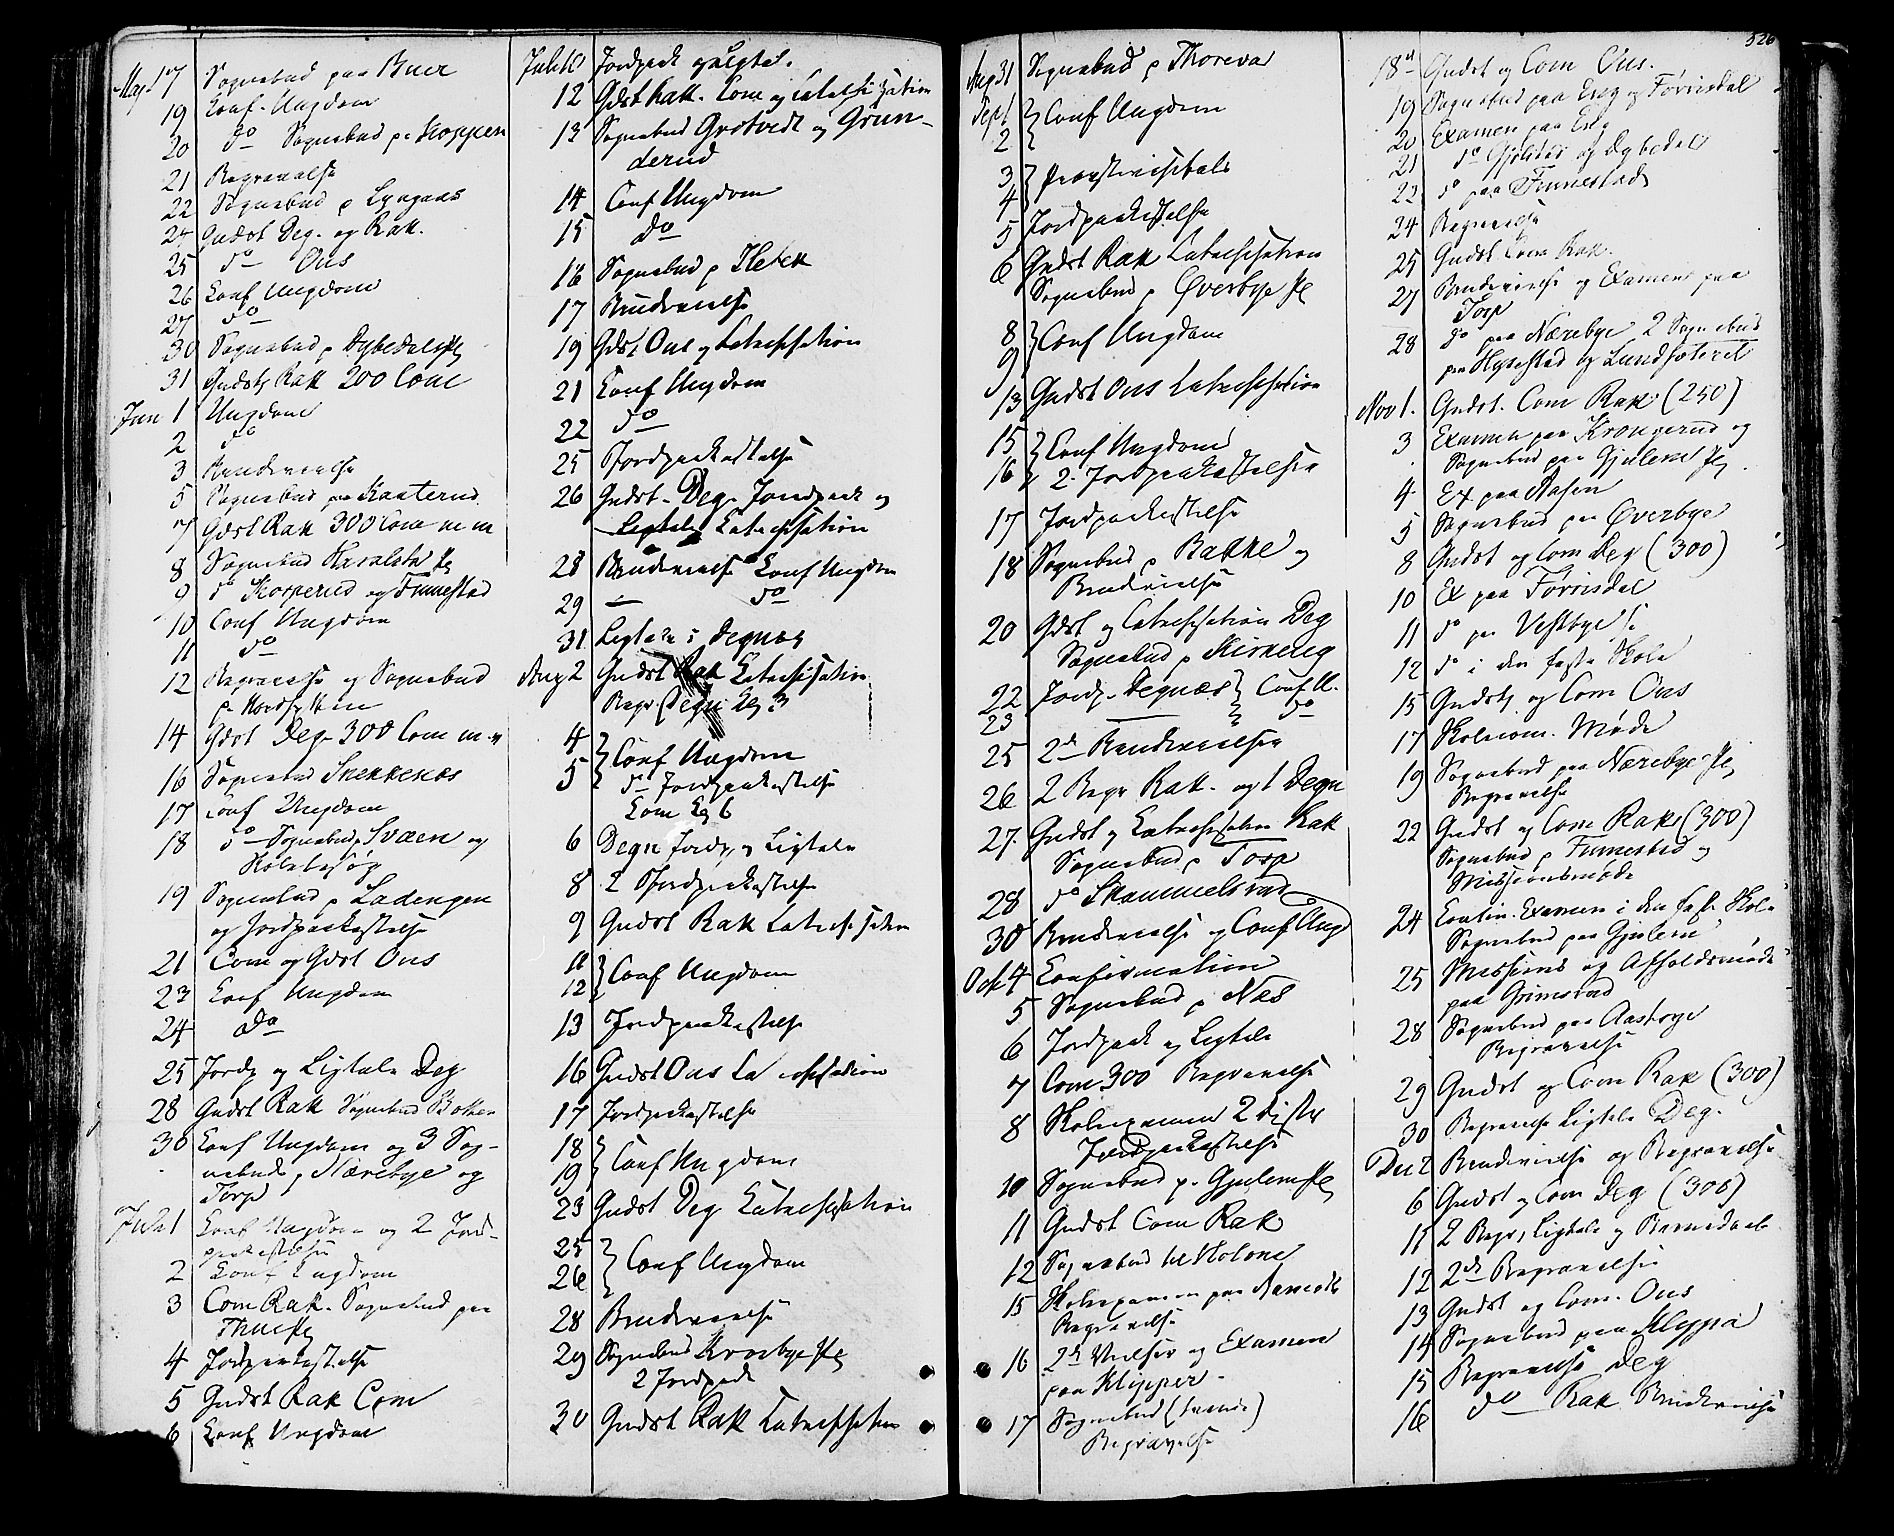 May 17 Sognebud paa Buer
19 Conf. Ungdom
20 do Sognebud pa Koppen
21 Begravelse
22 Sognebud p Lyngnæs
24 Gudst Deg. og Rak.
25 do Ons
26 Conf Ungdom
27 do
30 Sognebud p
31 Gudstj Rak 200 Com
Jun 1 Ungdom
2 do
3 Brudevielse
5 Sognebud paa Kaaterud
7 Gdst Rak 300 Com m m
8 Sognebud
9 do Kopperud og Finnestad
10 Conf Ungdom
11 do
12 Begravelse og Sognebud
p
14 Gdst Deg 300 Com m m
16 Sognebud Snekkenæs
17 Conf Ungdom
18 do Sognebud Svaen og
19 Sognebud p Ladengen
og Jordpaakastelse
21 Com og Gdst Ons
23 Conf Ungdom
24 do
25 Jordp og Ligtale Deg
28 Gudst Rak Sognebud
30 Conf Ungdom og 3 Sog-
nebud p Nærebye og
Torp
Juli 1 Conf Ungdom og 2 Jord-
paakastelse
2 Conf Ungdom
3 Com Rak. Sognebud paa
4 Jordpaakastelse
5 Gudst Rak Com
6 Conf Ungdom
Juli Jordpaak og Ligtal.
12 Gdst Rak. Com og Catechisation
13 Sognebud Grotvedt og Grun-
derud
14 Conf Ungdom
15 do
16 Sognebud p
17 Brudevielse
19 Gdst Ons og Catechisation
21 Conf Ungdom
22 do
25 Jordpaakastelse
26 Gudst. Deg. Jordpaak og
Ligtale Catechisation
28 Brudevielse Conf Ungdom
29 — do
31 Ligtale i Degnæs
Aug 2 Gudst Rak Catechisation
4 } Conf Ungdom
5 do Jordpaakastelse
6 Degn Jordp og Ligtale
8 2 Jordpaakastelse
9 Gudst Rak Catechisation
11
12 } Conf Ungdom
13 Jordpaakastelse
16 Gudst Ons Catechisation
17 Jordpaakastelse
18
19 } Conf Ungdom
23 Gudst Deg Catechisation
25
26 } Conf Ungdom
28 Brudevielse
29 Sognebud Krosbye
2 Jordpaak
30 Gudst Rak Catechisation
Aug 31 Sognebud p Thorerød
Sept 1
2 } Conf Ungdom
3
4 } Provstevisitats
5 Jordpaakastelse
6 Gudst Rak Catechisation
Sognebud p Øverbye
8
9 } Conf Ungdom
13 Gudst Ons Catechisation
15 } Conf Ungdom
16 2 Jordpaakastelser
17 Jordpaakastelse
18 Sognebud p Bakke og
Brudevielse
20 Gdst og Catechisation Deg
Sognebud p Kirkeng
22 Jordp. Degnæs } Conf U.
23 — do
25 2de Brudevielser
26 2 Begr Rak. og 1 Degn
27 Gudst og Catechisation Rak
Sognebud p Torp
28 do Skammelsrød
30 Brudevielse og Conf Ungd
Oct 4 Confirmation
5 Sognebud p Næs
6 Jordpaak og Ligtale
7 Com 300 Begravelse
8 Skoleexamen 2 Distr
Jordpaakastelse
10 Sognebud p. Gjulem
11 Gudst Com Rak
12 Sognebud til
15 Skoleexamen paa
Begravelse
16 2de Vielser og Examen
paa Klepper
17 Sognebud
Begravelse
526
18de Gudst og Com Ons.
19 Sognebud paa Eng og Førrisdal
20 Examen paa Eng
21 do
22 do paa Finnestad
24 Begravelse
25 Gudst Com Rak.
27 Brudevielse og Examen paa
Torp
28 do paa Nærebye 2 Sognebud
paa og Lundsæteret
Nov 1. Gudst. Com Rak (250)
3 Examen paa Krongerud og
Sognebud paa Gjulem
4 Ex paa Aasen
5 Sognebud paa Øverbye
8 Gudst og Com Deg (300)
10 Ex paa Førrisdal
11 do paa Vestbye
12 do i den faste Skole
15 Gudstj og Com Ons
17 Skolecom. Møde
19 Sognebud paa Nærebye
Begravelse
22 Gudst og Com Rak (300)
Sognebud p Finnestad og
Missionsmøde
24 Contin. Examen i den faste Skole
Sognebud paa Gjulem
25 Missions og Afholdsmøde
paa Grimsrød
28 Sognebud paa Aasbye
Begravelse
29 Gudst og Com Rak (300)
30 Begravelse Ligtale Deg.
Dec 2 Brudevielse og Begravelse
6 Gudst og Com Deg (300)
11 2 Begr, Ligtale og Barnedaab
12 2de Begravelser
13 Gudst og Com. Ons
14 Sognebud paa
15 Begravelse Deg
16 do Rak Brudevielse